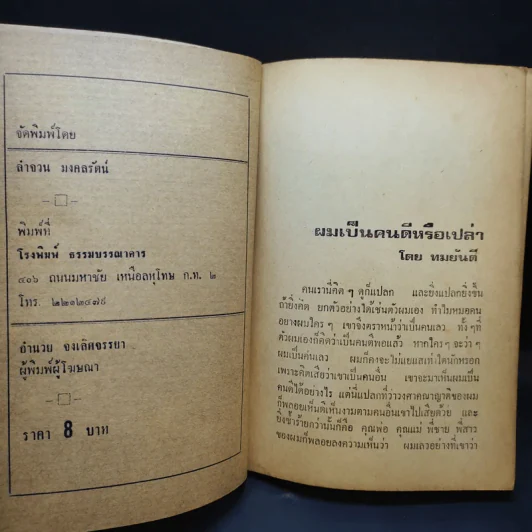 จัดพิมพ์โดย
ลำจวน มงคลรัตน์
พิมพ์ที่
โรงพิมพ์ ธรรมบรรณาคาร
๔๐๖ ถนนมหาชัย เหนือลหุโทษ ก.ท. ๒
โทร. ๒๒๑๒๔๗๘
อำนวย จงเลิศจรรยา
ผู้พิมพ์ผู้โฆษณา
ราคา 8 บาท
ผมเป็นคนดีหรือเปล่า
โดย ทมยันตี
คนเรานี่คิด ๆ ดูก็แปลก และยิ่งแปลกยิ่งขึ้น
ถ้ายิ่งคิด ยกตัวอย่างได้เช่นตัวผมเอง ทำไมหมอคน
อย่างผมใคร ๆ เขาจึงตราหน้าว่าเป็นคนเลว ทั้ง ๆ ที่
ตัวผมเองก็คิดว่าเป็นคนดีพอแล้ว หากใครๆ จะว่า
ผมเป็นคนเลว ผมก็คงจะไม่แยแสเท่าใดนักหรอก
เพราะคิดเสียว่าเขาเป็นคนอื่น เขาจะมาเห็นผมเป็น
คนดีได้อย่างไร แต่นี่แปลกที่ว่าวงศาคณาญาติของผม
ก็พลอยเห็นดีเห็นงามตามคนอื่นเขาไปเสียด้วย และ
ยิ่งซ้ำร้ายกว่านั้นก็คือ คุณพ่อ คุณแม่ พี่ชาย พี่สาว
ของผมก็พลอยลงความเห็นว่า ผมเลวอย่างที่เขาว่า